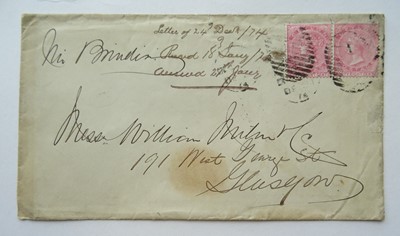 Letter of 24th Decr/74
Via Brindisi Recd 18 Jany/75
answd 27 Jany
Messrs William Milne & Co
191 West George St
Glasgow